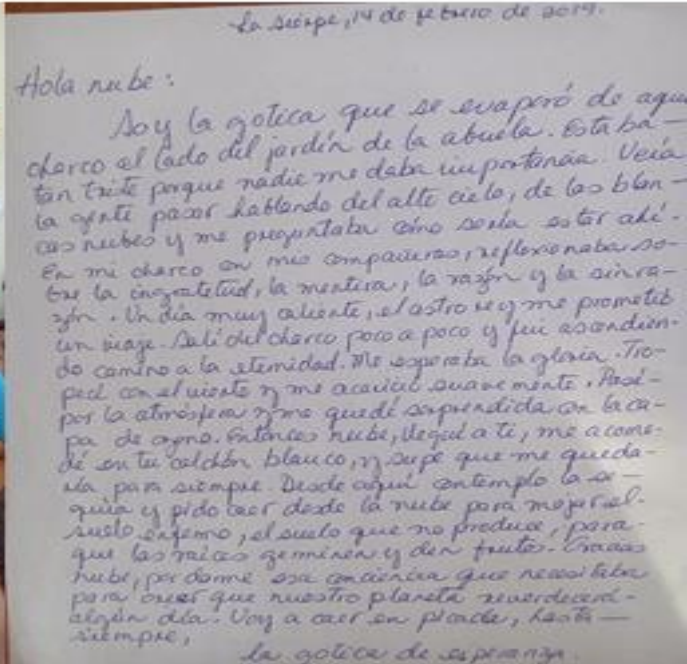 La Sierpe, 14 de febrero de 2019.
Hola nube:
Soy la gotica que se evaporó de aquel
charco al lado del jardín de la abuela. Estaba
tan triste porque nadie me daba importancia. Veía
la gente pasar hablando del alto cielo, de las blan-
cas nubes y me preguntaba cómo sería estar ahí.
En mi charco con mis compañeras, reflexionaba so-
bre la ingratitud, la mentira, la razón y la sinra-
zón. Un día muy caliente, el astro rey me prometió
un viaje. Salí del charco poco a poco y fui ascendien-
do camino a la eternidad. Me esperaba la gloria. Tro-
pecé con el viento y me acarició suavemente. Pasé-
por la atmósfera y me quedé sorprendida con la ca-
pa de ozono. Entonces nube, llegué a ti, me acomo-
dé en tu colchón blanco, y supe que me queda-
ría para siempre. Desde aquí contemplo la se-
quía y pido caer desde la nube para mojar el-
suelo enfermo, el suelo que no produce, para-
que las raíces germinen y den frutos. Gracias
nube, por darme esa conciencia que necesitaba
para creer que nuestro planeta reverdecerá-
algún día. Voy a caer en picada, hasta —
siempre,
la gotica de esperanza.